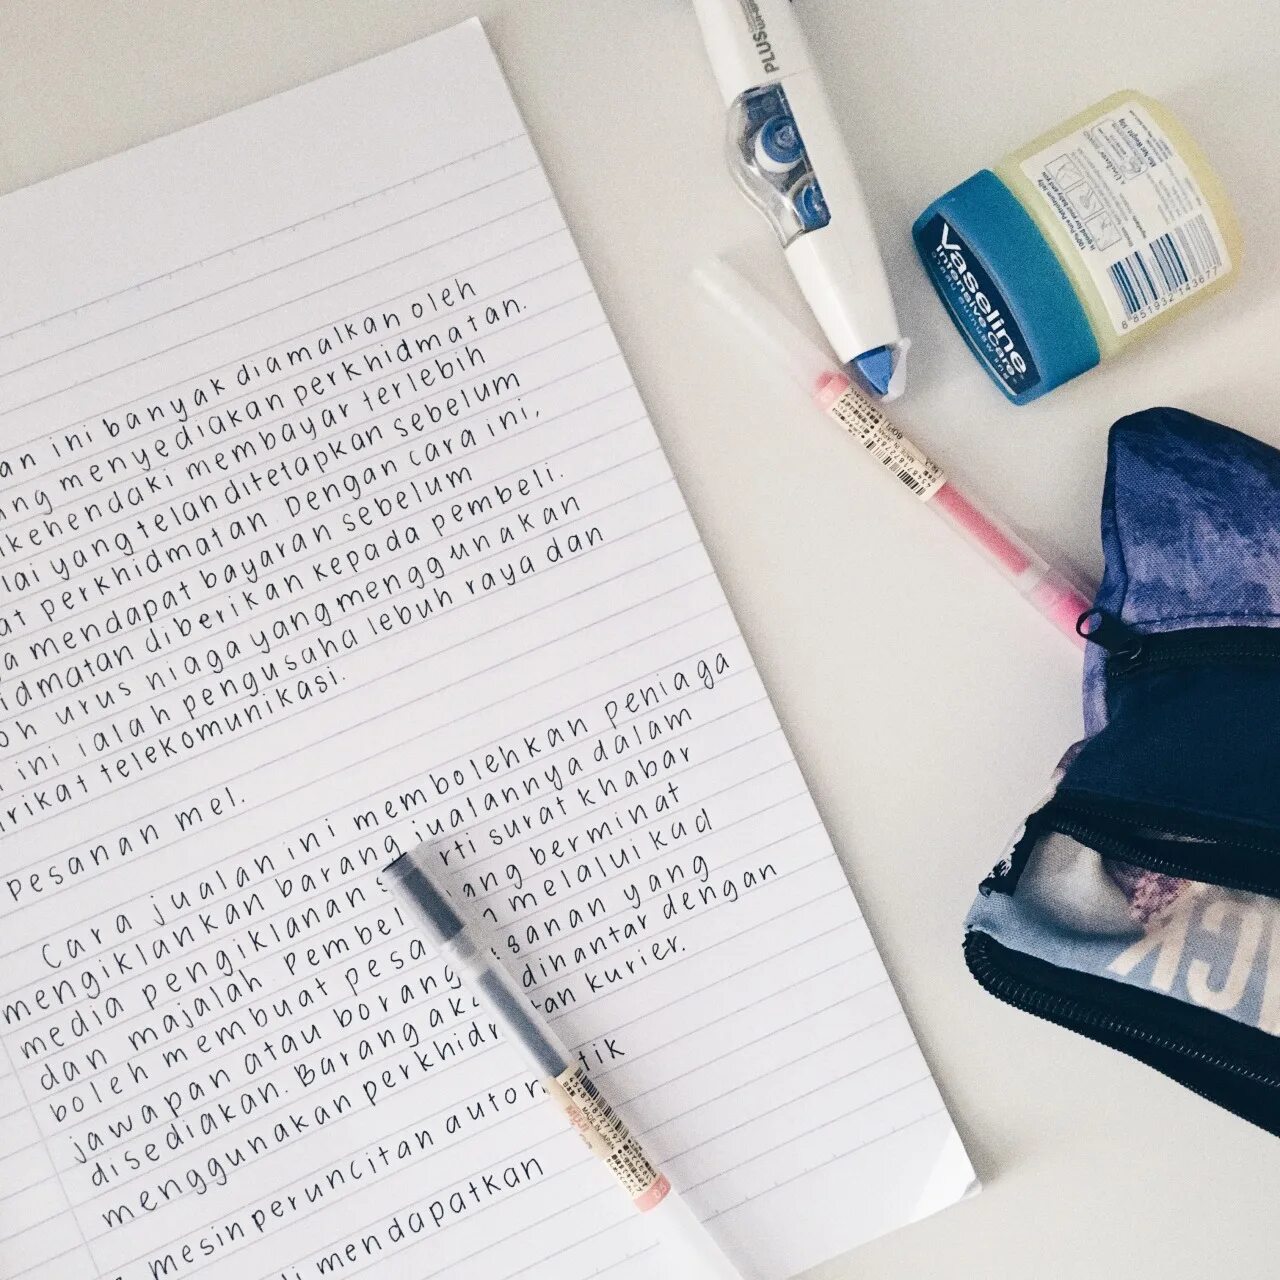 an ini banyak diamalkan oleh
ang menyediakan perkhidmatan.
ikehendaki membayar terlebih
lai yang telah ditetapkan sebelum
at perkhidmatan. Dengan cara ini,
a mendapat bayaran sebelum
idmatan diberikan kepada pembeli.
oh urus niaga yang menggunakan
ini ialah pengusaha lebuh raya dan
rikat telekomunikasi.
pesanan mel.
Cara jualan ini membolehkan peniaga
mengiklankan barang jualannya dalam
media pengiklanan s rti surat khabar
dan majalah. Pembel ang berminat
boleh membuat pesa n melalui kad
jawapan atau borang sanan yang
disediakan. Barang aka dinantar dengan
menggunakan perkhid tan kurier.
mesin peruncitan autom tik
i mendapatkan
PLUS
Vaseline
Intensive Care
100% Pure Petroleum Jelly
8 851932 143677
MUJI
MADE IN JAPAN
4548718727797
ACK